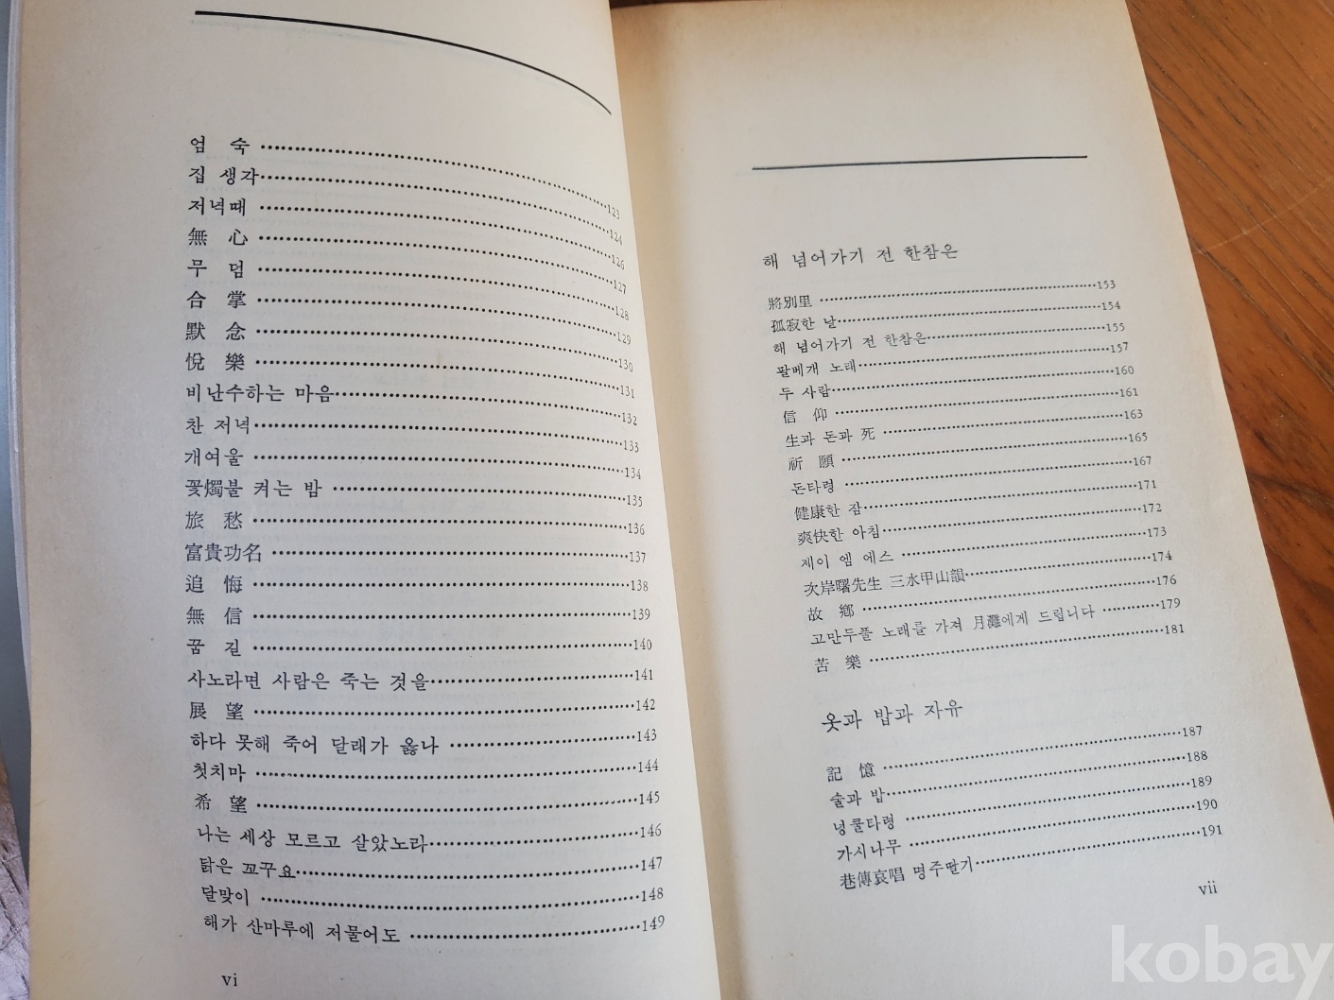 엄 숙 ……… 123
집 생각 ……… 124
저녁때 ……… 126
無 心 ……… 127
무 덤 ……… 128
合 掌 ……… 129
默 念 ……… 130
悅 樂 ……… 131
비난수하는 마음 ……… 132
찬 저녁 ……… 133
개여울 ……… 134
꽃燭불 켜는 밤 ……… 135
旅 愁 ……… 136
富貴功名 ……… 137
追 悔 ……… 138
無 信 ……… 139
꿈 길 ……… 140
사노라면 사람은 죽는 것을 ……… 141
展 望 ……… 142
하다 못해 죽어 달래가 옳나 ……… 143
첫치마 ……… 144
希 望 ……… 145
나는 세상 모르고 살았노라 ……… 146
닭은 꼬꾸요 ……… 147
달맞이 ……… 148
해가 산마루에 저물어도 ……… 149
vi
해 넘어가기 전 한참은
將別里 ……… 153
孤寂한 날 ……… 154
해 넘어가기 전 한참은 ……… 155
팔베개 노래 ……… 157
두 사람 ……… 160
信 仰 ……… 161
生과 돈과 死 ……… 163
祈 願 ……… 165
돈타령 ……… 167
健康한 잠 ……… 171
爽快한 아침 ……… 172
제이 엠 에스 ……… 173
次岸曙先生 三水甲山韻 ……… 174
故 鄕 ……… 176
고만두풀 노래를 가져 月灘에게 드립니다 ……… 179
苦 樂 ……… 181
옷과 밥과 자유
記 憶 ……… 187
술과 밥 ……… 188
넝쿨타령 ……… 189
가시나무 ……… 190
巷傳哀唱 명주딸기 ……… 191
vii
kobay